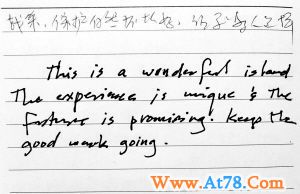 保护自然
This is a wonderful island
The experience is unique & the
future is promising! Keep the
good work going.
Www.At78.Com